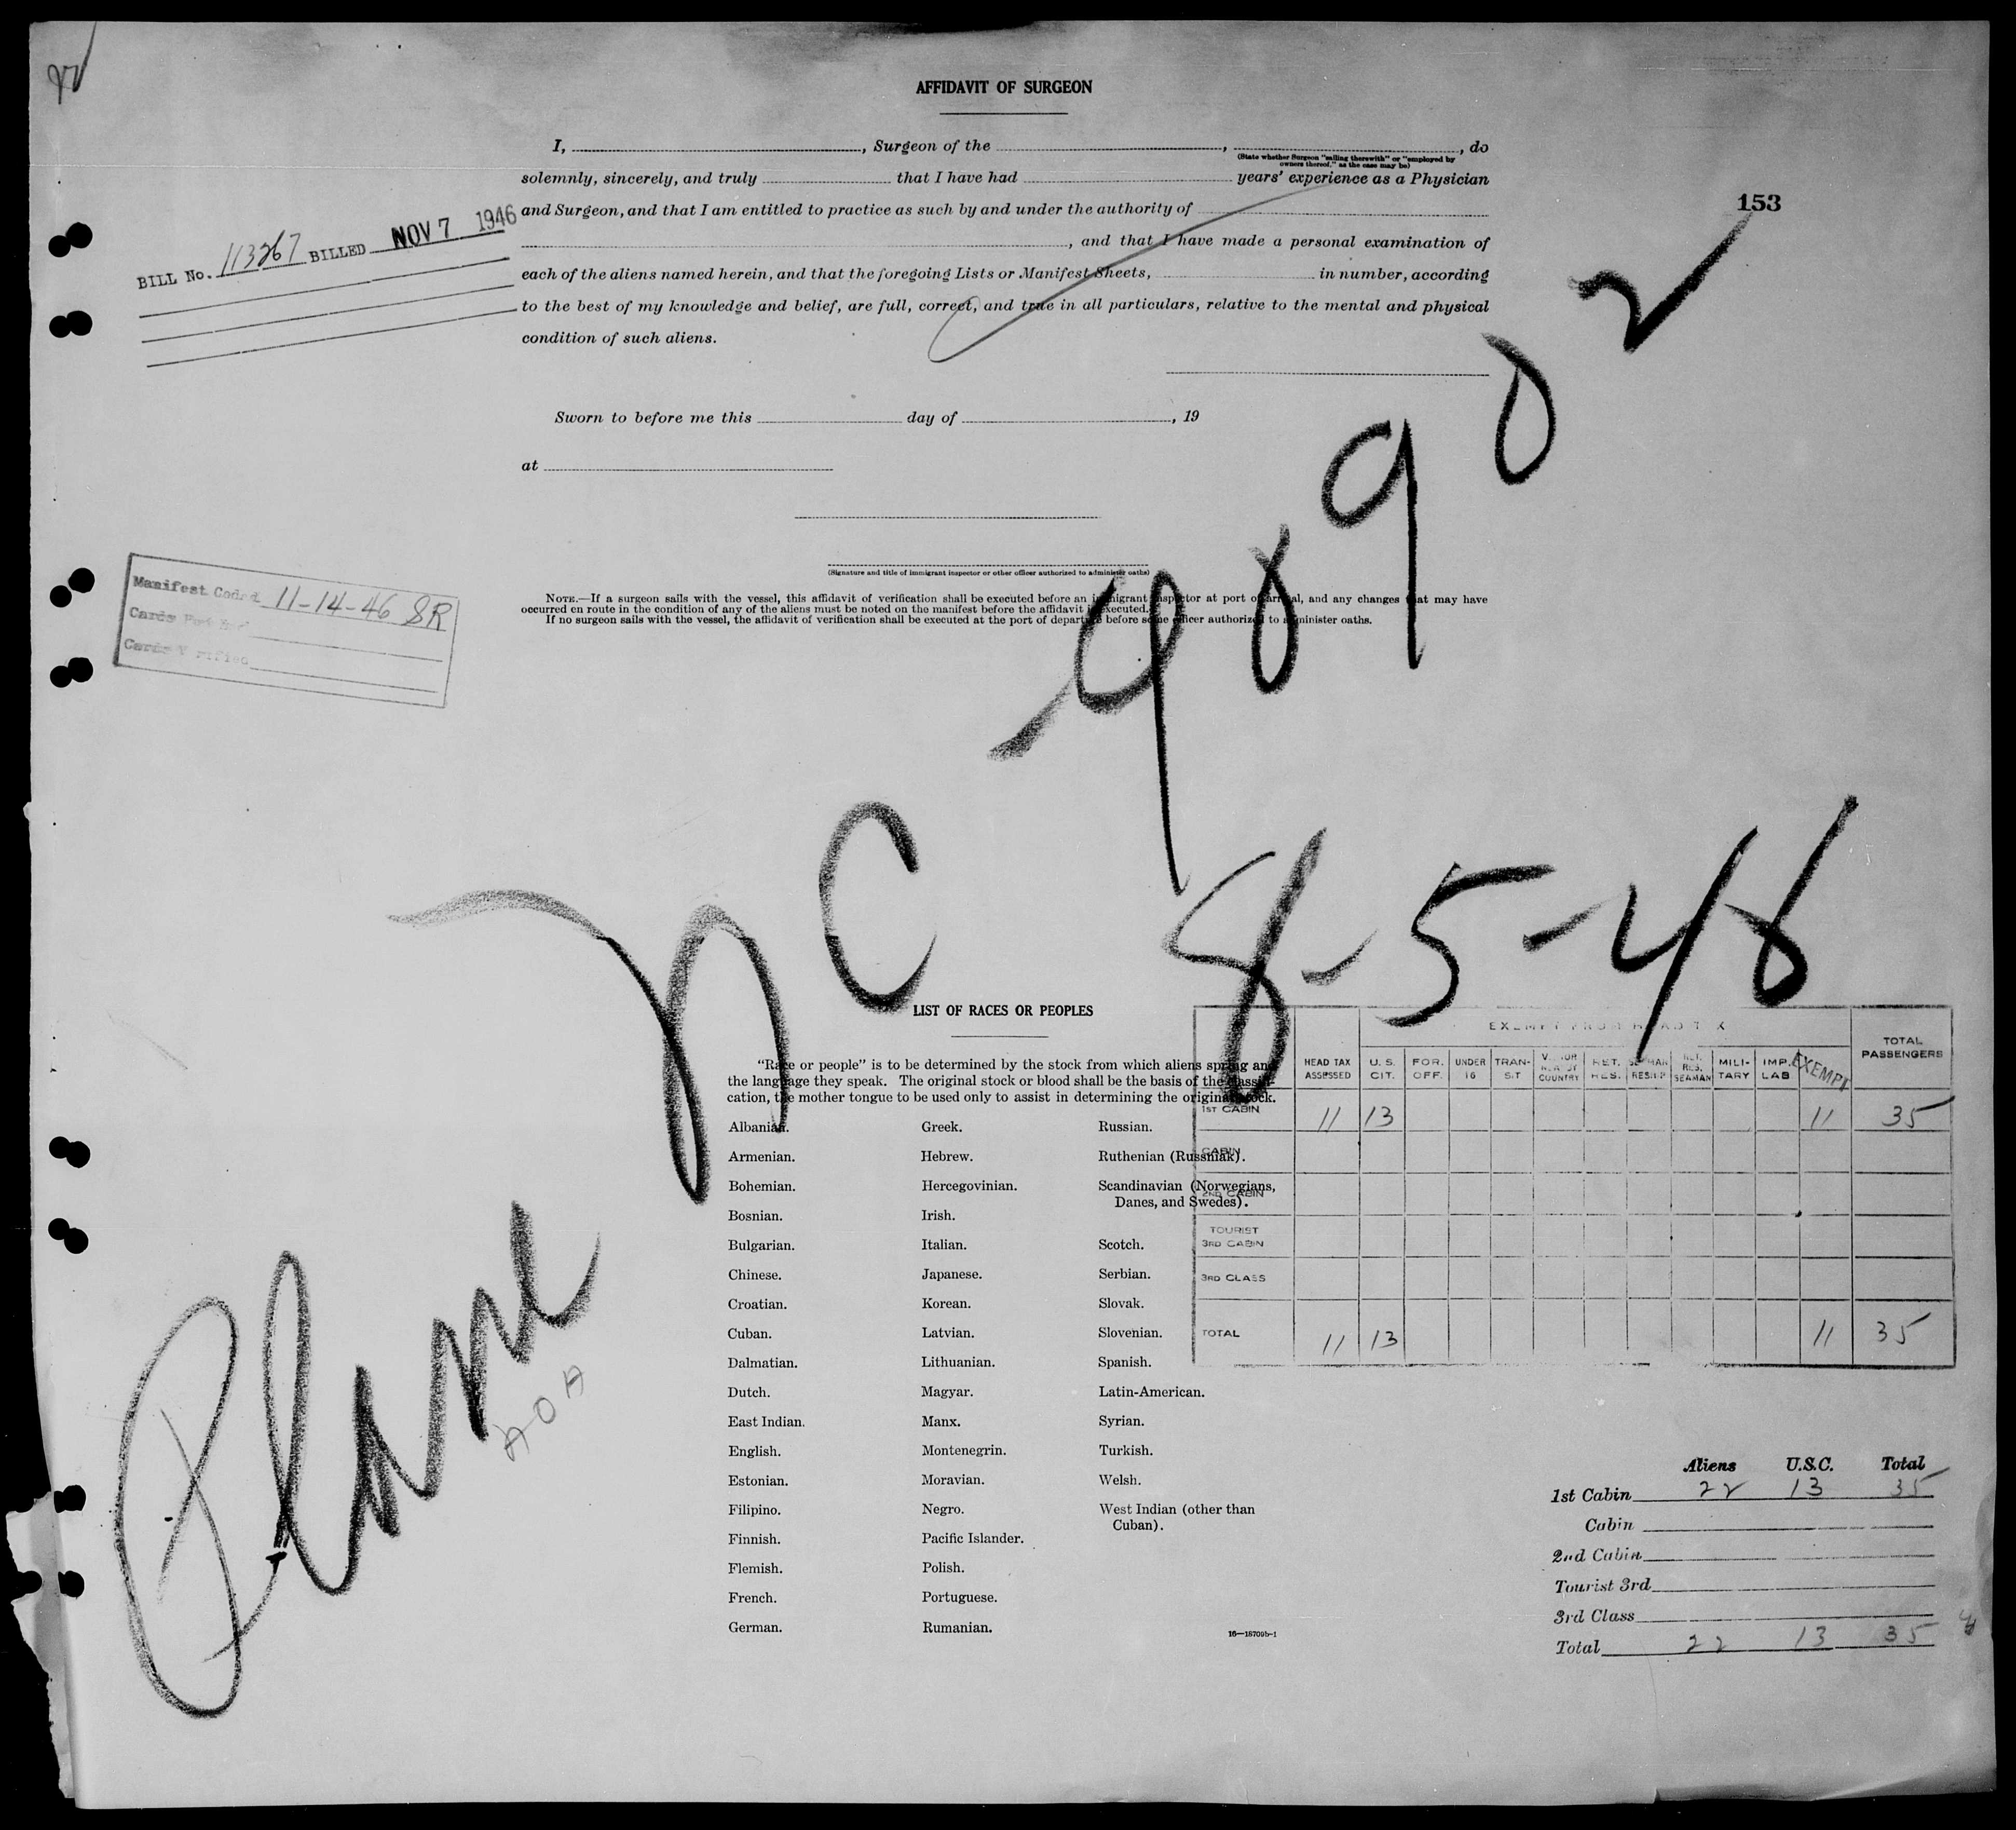 AFFIDAVIT OF SURGEON
I, , Surgeon of the , , do
(State whether Surgeon "sailing therewith" or "employed by
owners thereof," as the case may be)
solemnly, sincerely, and truly that I have had years' experience as a Physician
153
and Surgeon, and that I am entitled to practice as such by and under the authority of
BILL No. 113267 BILLED NOV 7 1946
, and that I have made a personal examination of
each of the aliens named herein, and that the foregoing Lists or Manifest Sheets, in number, according
to the best of my knowledge and belief, are full, correct, and true in all particulars, relative to the mental and physical
condition of such aliens.
Sworn to before me this day of , 19
at
(Signature and title of immigrant inspector or other officer authorized to administer oaths)
Manifest Coded 11-14-46 SR
Cards
Cards Verified
NOTE.—If a surgeon sails with the vessel, this affidavit of verification shall be executed before an immigrant inspector at port of arrival, and any changes that may have
occurred en route in the condition of any of the aliens must be noted on the manifest before the affidavit is executed.
If no surgeon sails with the vessel, the affidavit of verification shall be executed at the port of departure before some officer authorized to administer oaths.
Plane NC 90902
8-5-46
AOA
LIST OF RACES OR PEOPLES
"Race or people" is to be determined by the stock from which aliens spring and
the language they speak. The original stock or blood shall be the basis of the classifi-
cation, the mother tongue to be used only to assist in determining the original stock.
Albanian.
Armenian.
Bohemian.
Bosnian.
Bulgarian.
Chinese.
Croatian.
Cuban.
Dalmatian.
Dutch.
East Indian.
English.
Estonian.
Filipino.
Finnish.
Flemish.
French.
German.
Greek.
Hebrew.
Hercegovinian.
Irish.
Italian.
Japanese.
Korean.
Latvian.
Lithuanian.
Magyar.
Manx.
Montenegrin.
Moravian.
Negro.
Pacific Islander.
Polish.
Portuguese.
Rumanian.
Russian.
Ruthenian (Russniak).
Scandinavian (Norwegians,
Danes, and Swedes).
Scotch.
Serbian.
Slovak.
Slovenian.
Spanish.
Latin-American.
Syrian.
Turkish.
Welsh.
West Indian (other than
Cuban).
16—18709b-1
EXEMPT FROM HEAD TAX
HEAD TAX ASSESSED U. S. CIT. FOR. OFF. UNDER 16 TRAN- SIT COUNTRY RET. RES. RES. SEAMAN MILI- TARY IMP. LAB EXEMPT TOTAL PASSENGERS
1ST CABIN 11 13 11 35
CABIN
2ND CABIN
TOURIST
3RD CABIN
3RD CLASS
TOTAL 11 13 11 35
Aliens U.S.C. Total
1st Cabin 22 13 35
Cabin
2nd Cabin
Tourist 3rd
3rd Class
Total 22 13 35